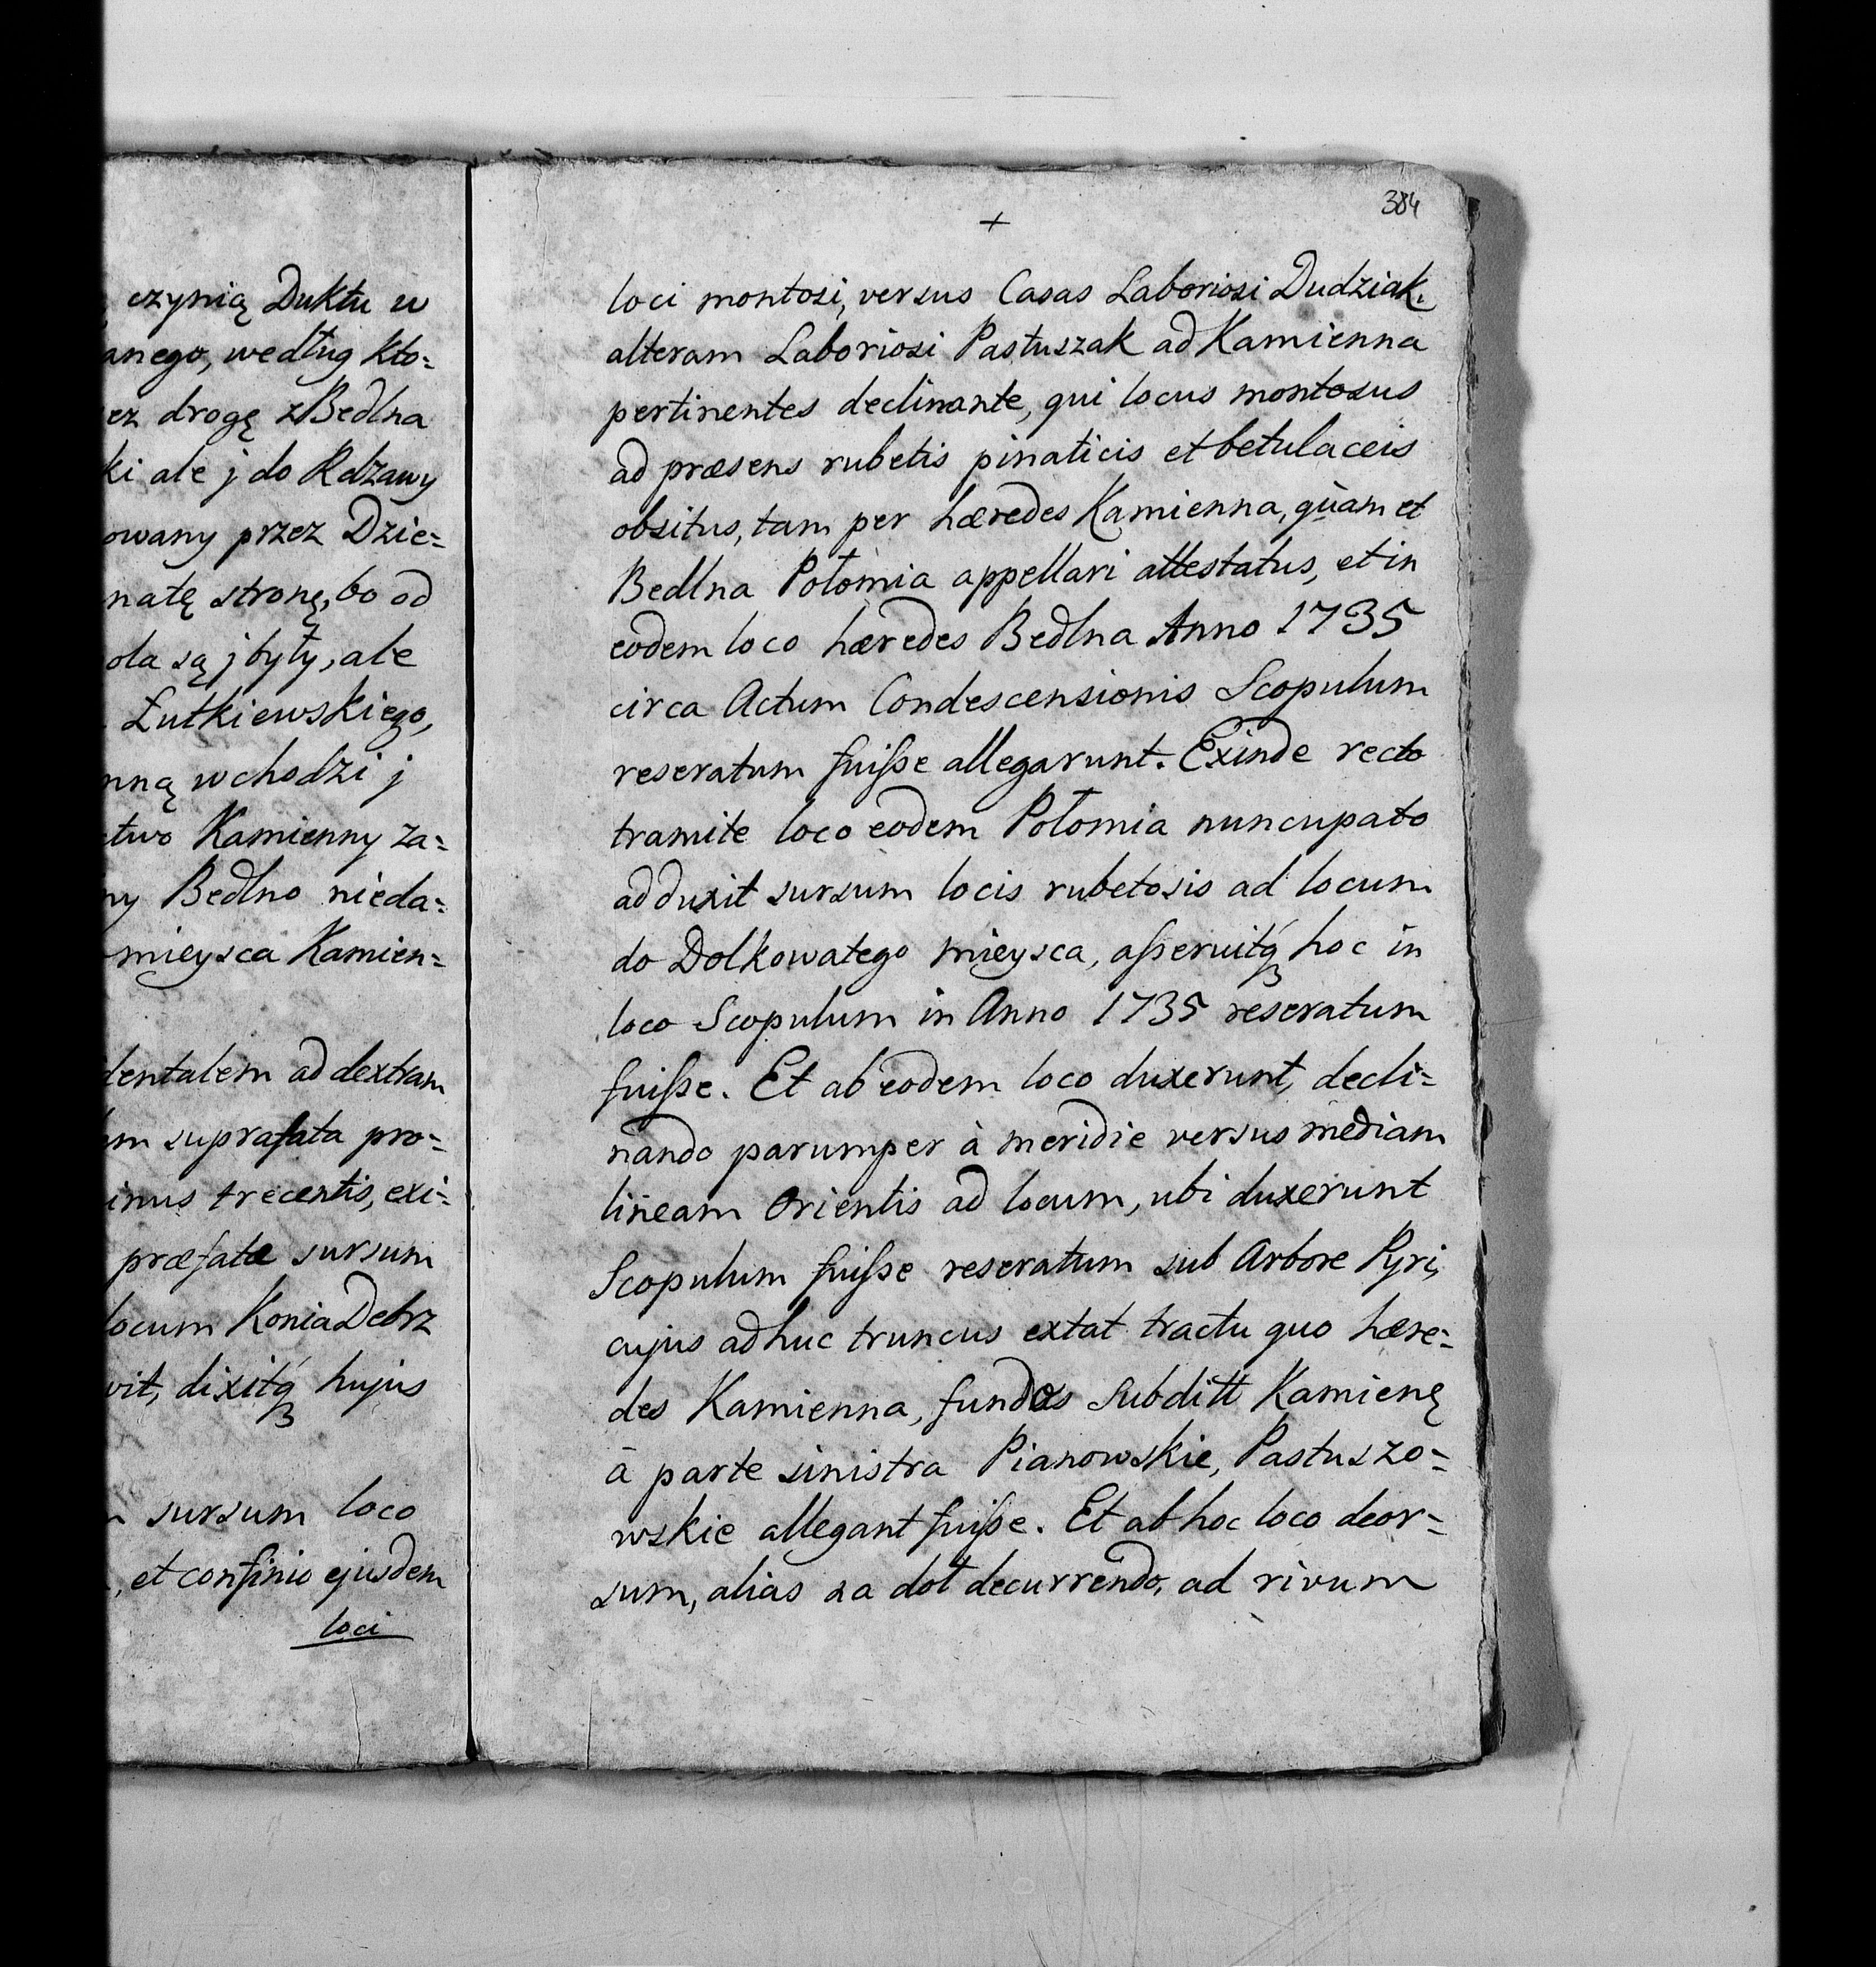 czynią Duktu w
anego, według kto=
ez drogę z Bedlna
ki ale j do Rdzawy
owany przez Dzie=
natę stronę, bo od
ola są j były, ale
Łutkiewskiego,
nną wchodzi j
ctwo Kamienny za=
ny Bedlno nieda=
mieysca Kamien=
dentalem ad dextram
um suprafata pro=
inus trecentis, exi=
præfatæ sursum
locum Konia Debrz
vit, dixitq́ꝫ hujus
sursum loco
, et confinio ejusdem
loci
384
+
loci montosi, versus Casas Laboriosi Dudziak,
alteram Laboriosi Pastuszak ad Kamienna
pertinentes declinante, qui locus montosus
ad præsens rubetis pinaticis et betulaceis
obsitus, tam per hæredes Kamienna, quam et
Bedlna Połomia appellari attestatus, et in
eodem loco hæredes Bedlna Anno 1735
circa Actum Condescensionis Scopulum
reseratum fuiſse allegarunt. Exinde recto
tramite loco eodem Połomia nuncupato
adduxit sursum locis rubetosis ad locum
do Dolkowatego mieysca, aſseruitq́ꝫ hoc in
loco Scopulum in Anno 1735 reseratum
fuiſse. Et ab eodem loco duxerunt, decli=
nando parumper à meridie versus mediam
lineam Orientis ad locum, ubi duxerunt
Scopulum fuiſse reseratum sub Arbore Pyri,
cujus adhuc truncus extat tractu quo hære=
des Kamienna, fundos Subditt Kamienę
à parte sinistra Pianowskie, Pastuszo=
wskie allegant fuiſse. Et ab hoc loco deor=
sum, alias na doł decurrendo, ad rivum